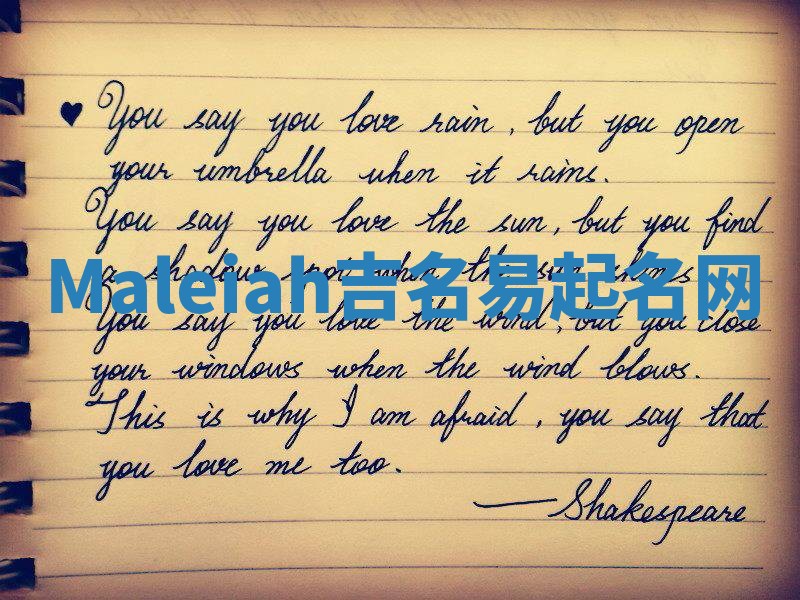 ♥ You say you love rain, but you open
your umbrella when it rains.
You say you love the sun, but you find
a shadow spot when the sun shines
Maleiah吉名易起名网
You say you love the wind, but you close
your windows when the wind blows.
This is why I am afraid, you say that
you love me too.
—Shakespeare